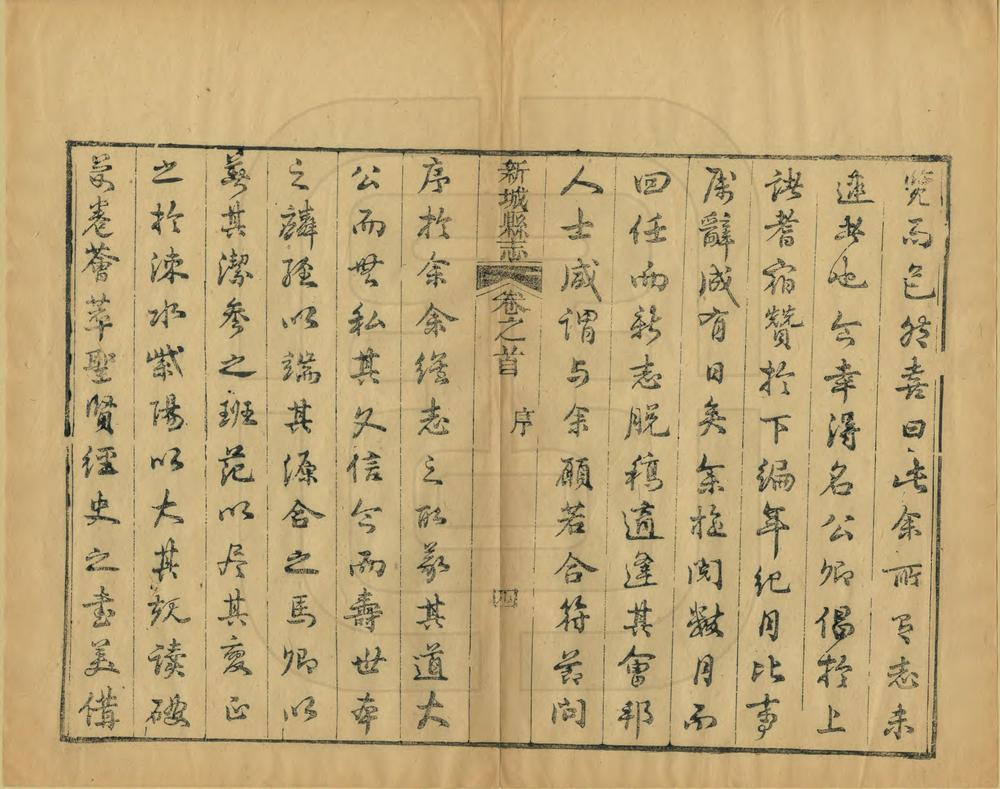 覽而色然喜曰此余所有志未
逮者也今幸得名公卿倡於上
諸耆宿贊於下編年紀月比事
属辭成有日矣余於閱數月而
回任而新志脱稿適逢其會邦
人士咸謂与余願若合符節問
新城縣志 卷之首 序 四
序於余余繹志之所豪其道大
公而無私其文信今而壽世本
之麟經以端其源合之馬卿以
其潔參之班范以尽其變正
之於涑水紫陽以大其規讀
是卷薈萃聖賢經史之書美備